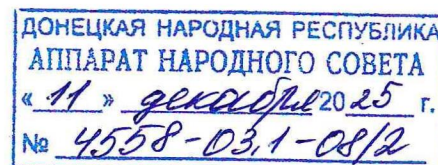 ДОНЕЦКАЯ НАРОДНАЯ РЕСПУБЛИКА
АППАРАТ НАРОДНОГО СОВЕТА
« 11 » декабря 20 25 г.
№ 4558-03.1-08/2